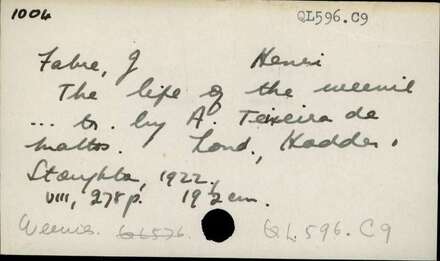 1004
QL596.C9
Fabre, J Henri
The life of the weevil
... tr. by A. Teixeira de
Mattos. Lond., Hodder,
Stoughton, 1922.
VIII, 278p. 19½cm.
Weevils. QL576. QL596.C9